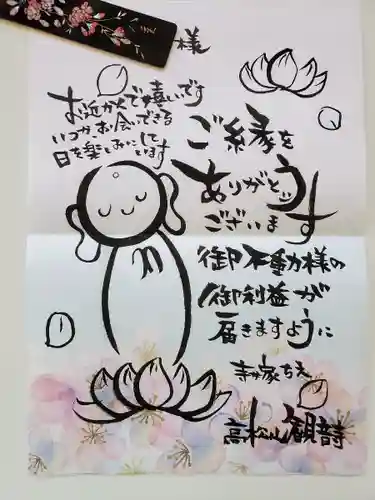 様
お近かくで嬉いです
いつか、お会いできる
日を楽しみにして
います
ご縁を
ありがとう
ございます
御不動様の
御利益が
届きますように
寺家ちえ
高松山観音寺